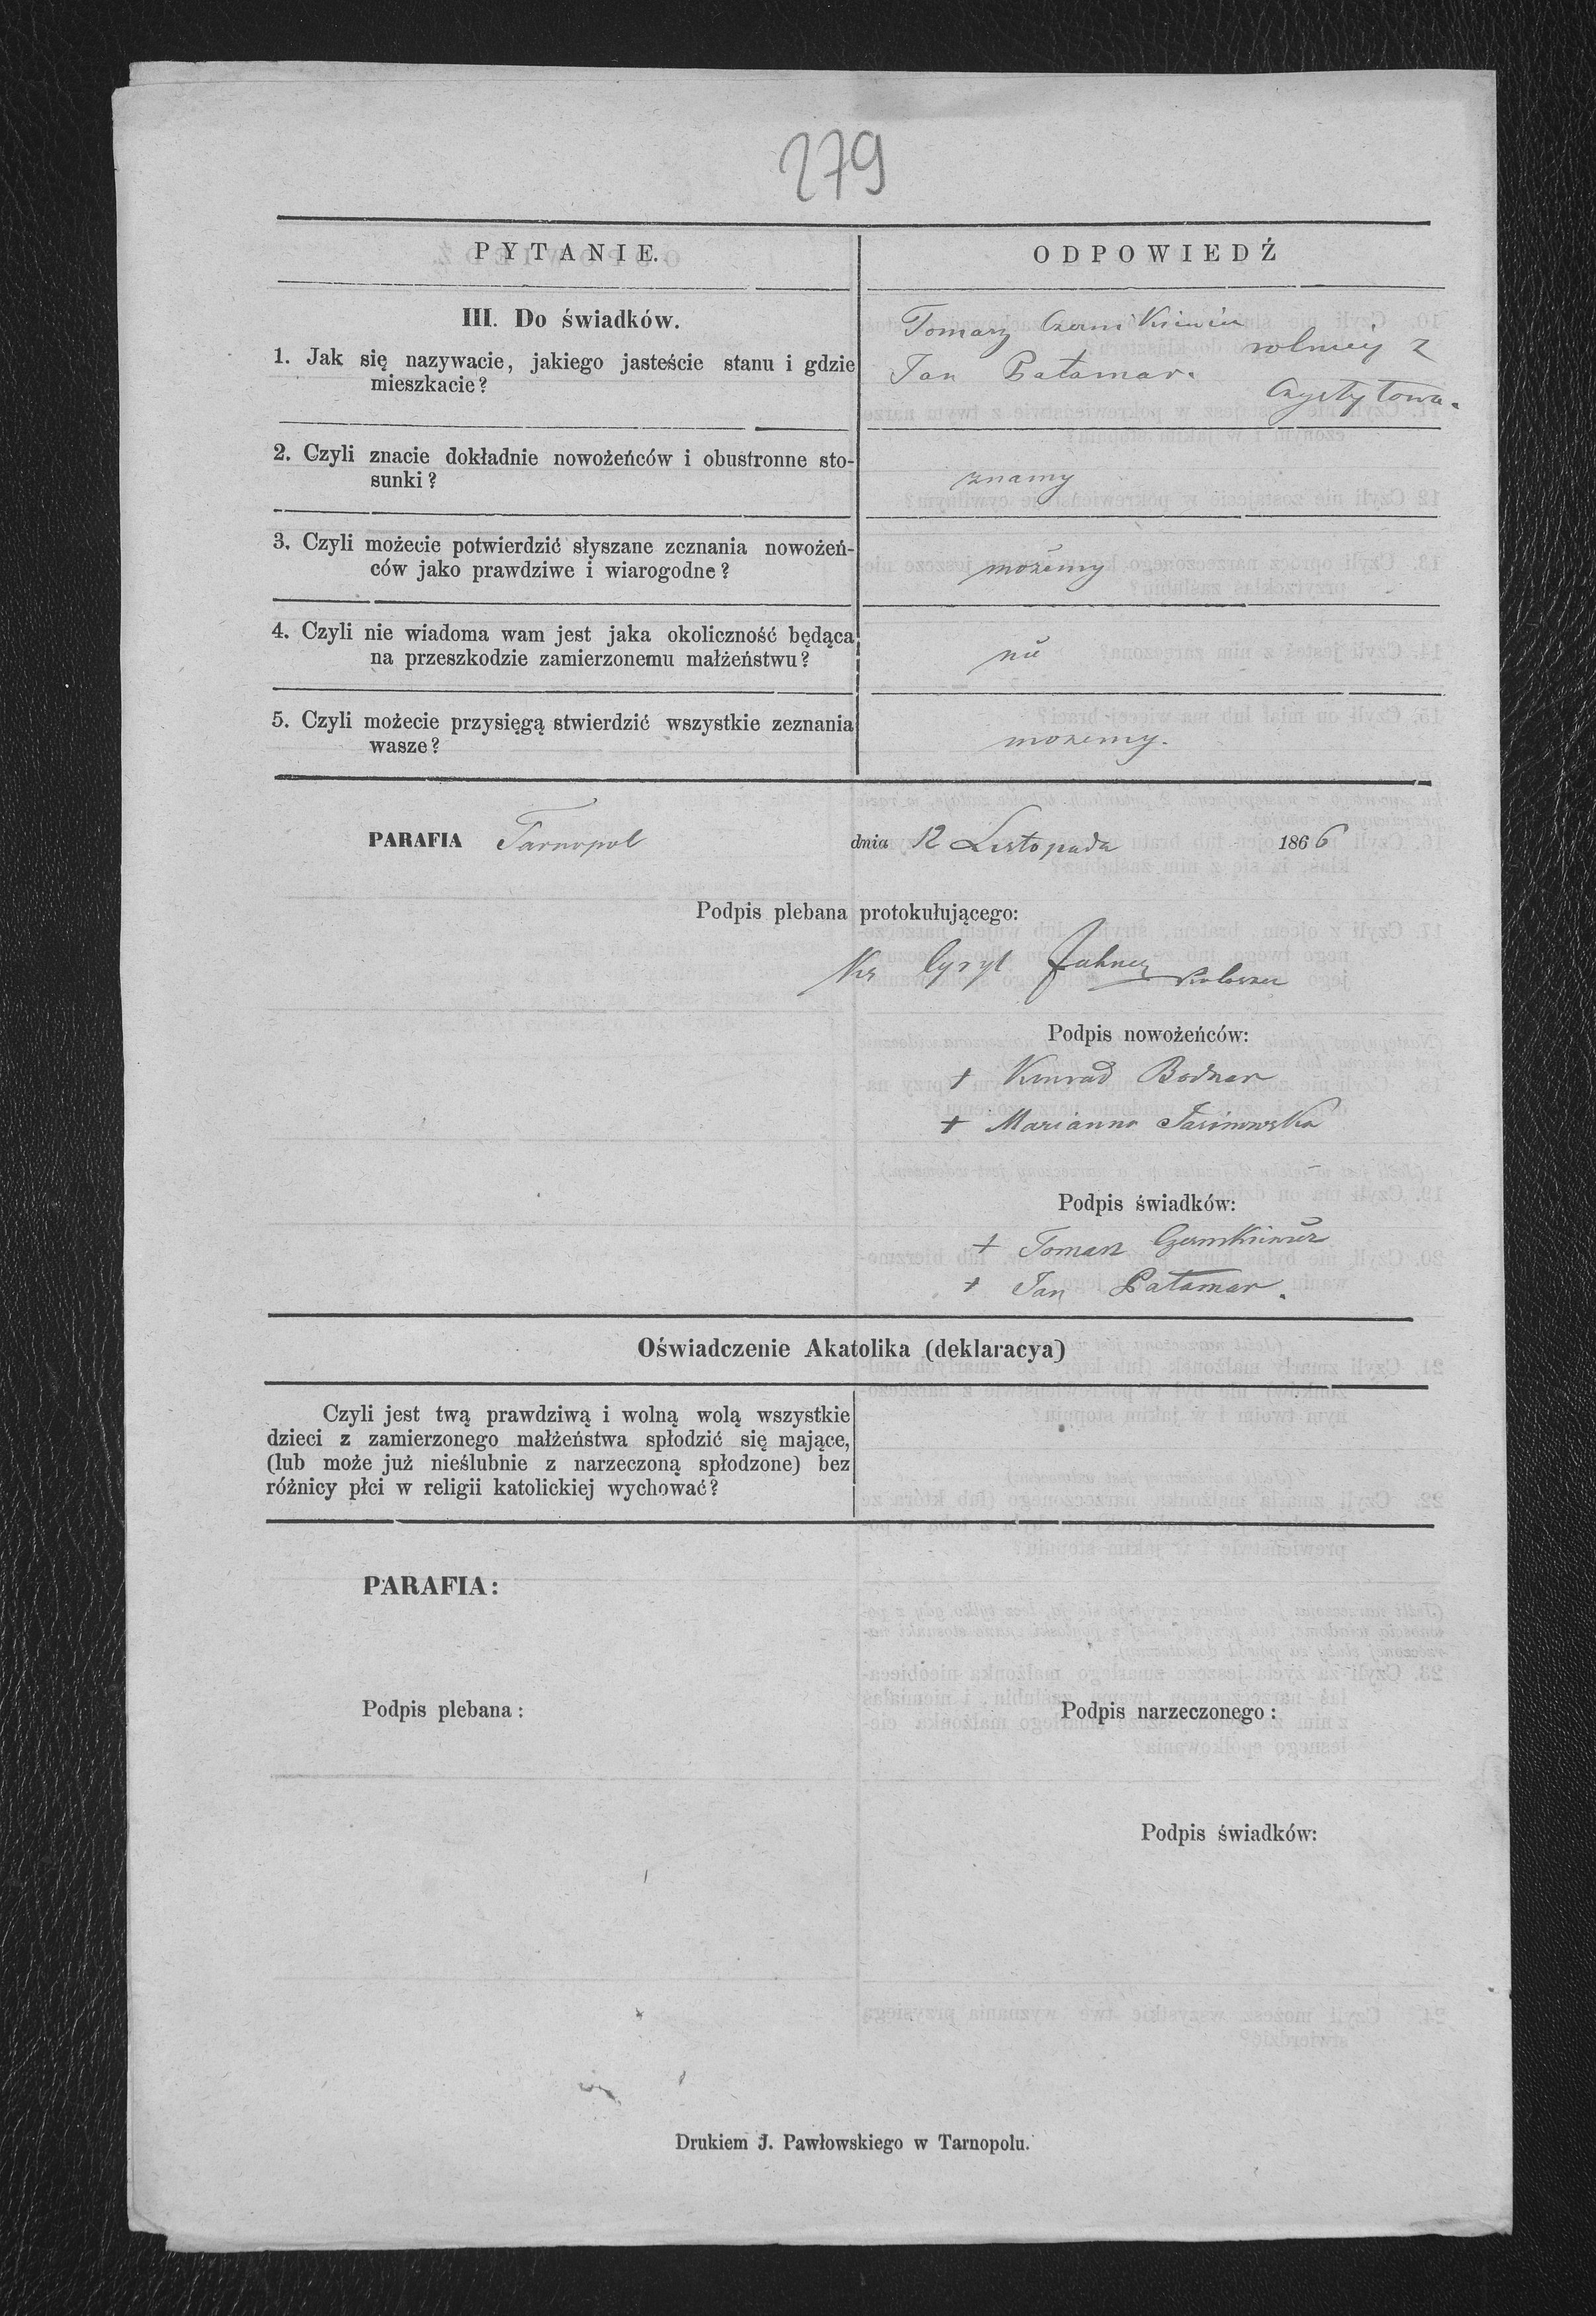 279
PYTANIE.
ODPOWIEDŹ
III. Do świadków.
1. Jak się nazywacie, jakiego jasteście stanu i gdzie
mieszkacie?
Tomasz
rolnicy z
Jan Bałamar.
Czystyłowa.
2. Czyli znacie dokładnie nowożeńców i obustronne sto-
sunki?
znamy
3. Czyli możecie potwierdzić słyszane zeznania nowożeń-
ców jako prawdziwe i wiarogodne?
możemy
4. Czyli nie wiadoma wam jest jaka okoliczność będąca
na przeszkodzie zamierzonemu małżeństwu?
nie
5. Czyli możecie przysięgą stwierdzić wszystkie zeznania
wasze?
możemy.
PARAFIA Tarnopol dnia 12 Listopada 1866
Podpis plebana protokułującego:
Ks Cyryl
Podpis nowożeńców:
+ Konrad Bodnar
+ Marianna Jasinowska
Podpis świadków:
+ Tomasz
+ Jan Bałamar.
Oświadczenie Akatolika (deklaracya)
Czyli jest twą prawdziwą i wolną wolą wszystkie
dzieci z zamierzonego małżeństwa spłodzić się mające,
(lub może już nieślubnie z narzeczoną spłodzone) bez
różnicy płci w religii katolickiej wychować?
PARAFIA:
Podpis plebana:
Podpis narzeczonego:
Podpis świadków:
Drukiem J. Pawłowskiego w Tarnopolu.